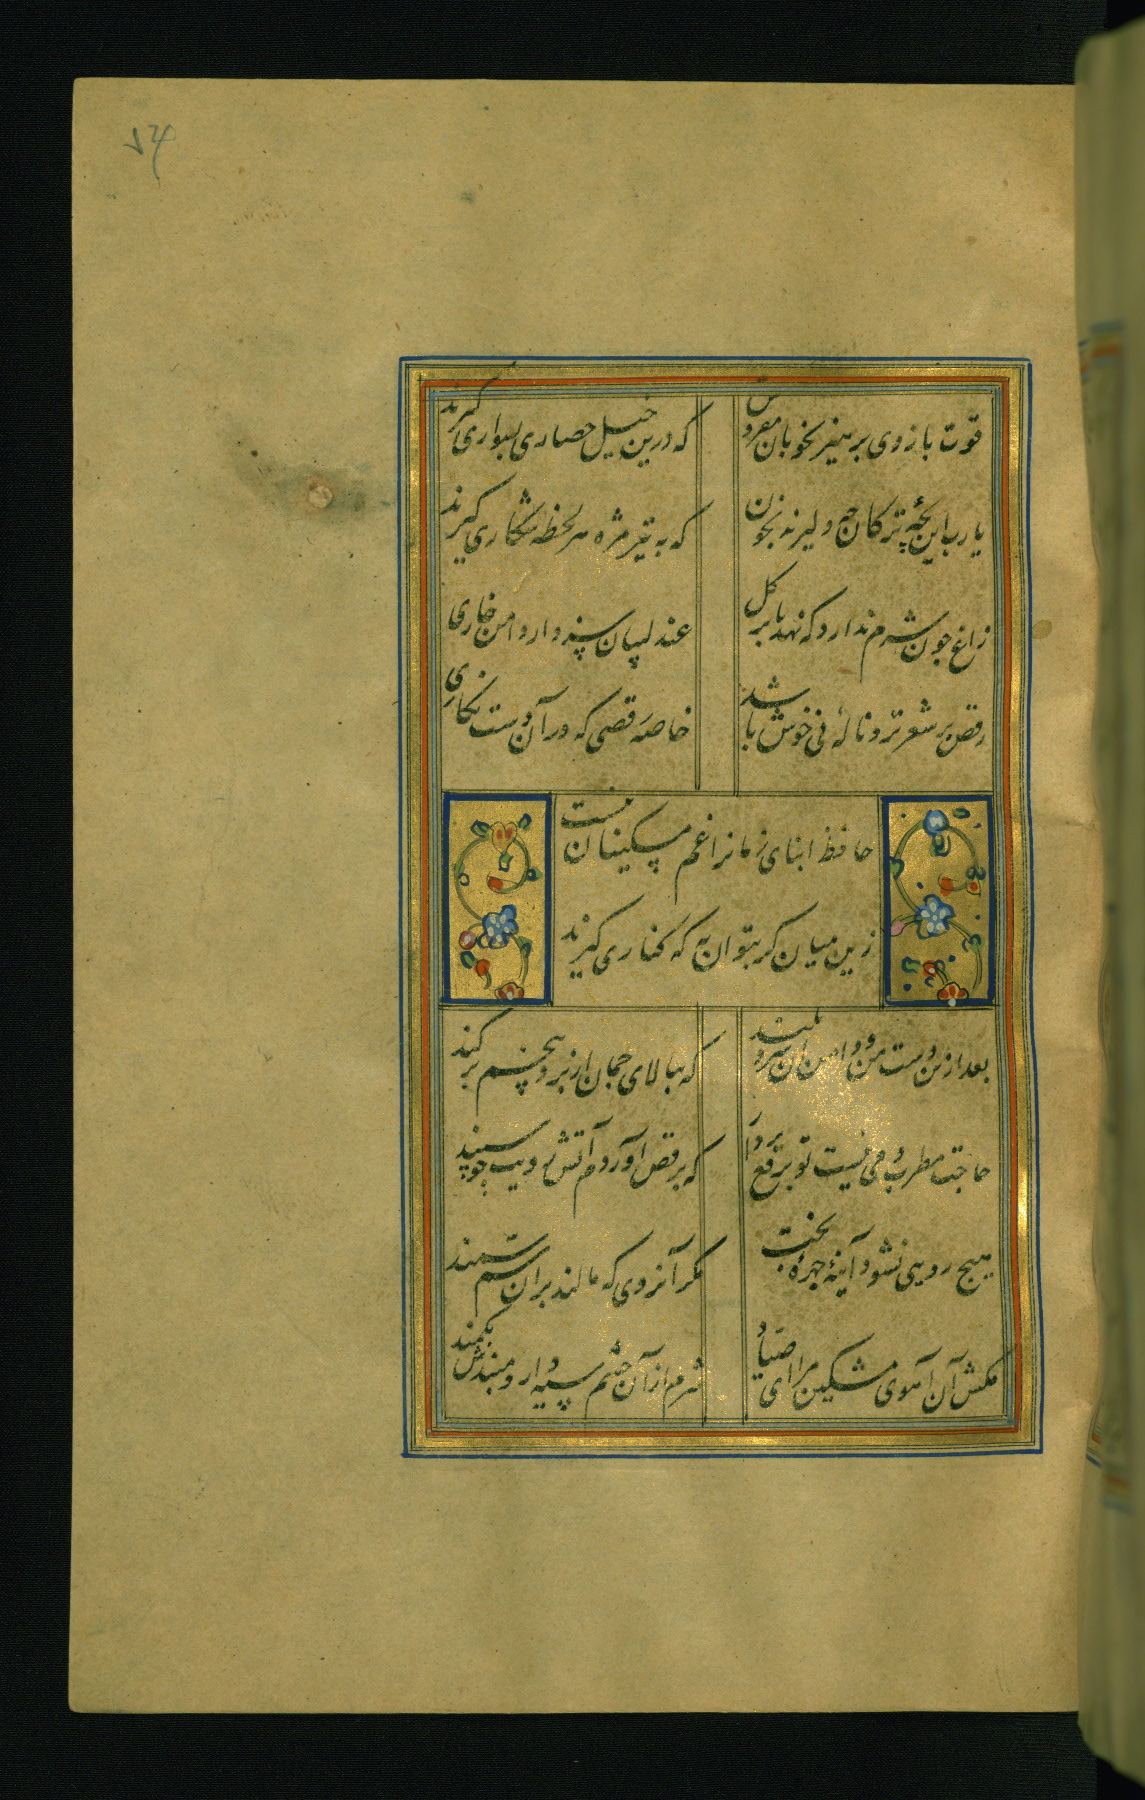 قوت بازوی پرهیز بخوبان مفروش
که درین خیل حصاری بسواری گیرند
یا رب این بچه ترکان چه دلیرند بخون
که به تیر مژه هر لحظه شکاری گیرند
زاغ چون شرم ندارد که نهد پا بر گل
عندلیبان سزد ار دامن خاری
رقص بر شعر تر و نالهٔ نی خوش باشد
خاصه رقصی که در آن دست نگاری
حافظ ابنای زمانرا غم مسکینان نیست
زین میان گر بتوان به که کناری گیرند
بعد ازین دست من و دامن آن سرو بلند
که ببالای چمان از بن و بیخم بر کند
حاجت مطرب و می نیست تو برقع
که برقص آوردم آتش رویت چو سپند
هیچ رویی نشود آینهٔ چهرهٔ بخت
مگر آنروی که مالند بران سم سمند
مکش آن آهوی مشکین مرا ای صیاد
شرم از آن چشم سیه دار و مبندش بکمند